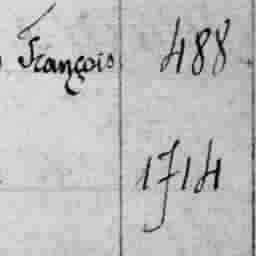 François 488
1714